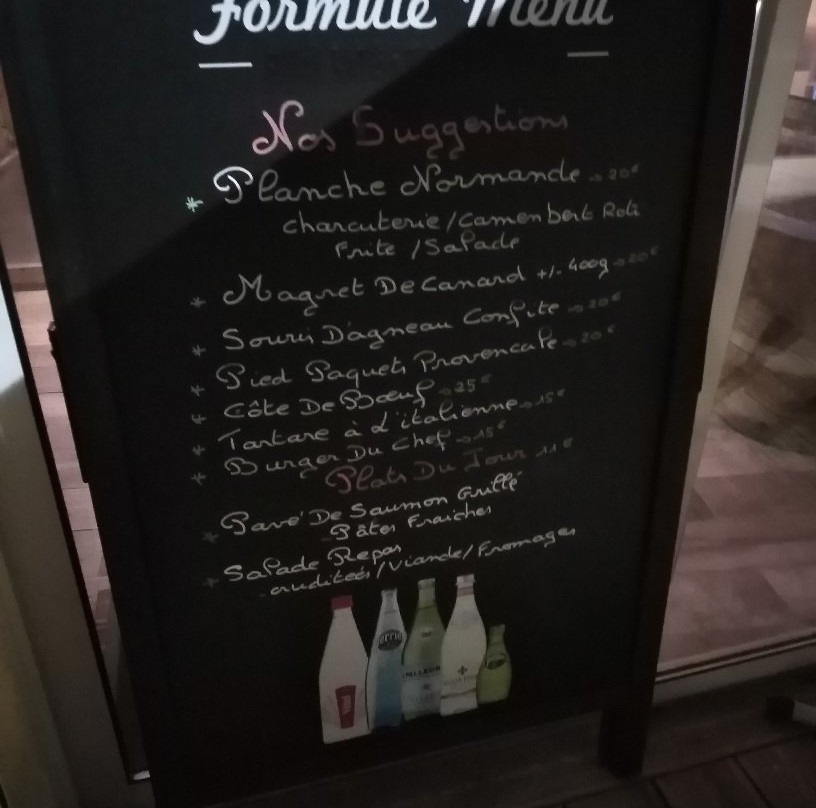 Formule Menu
Nos Suggestions
* Planche Normande → 20€
charcuterie / Camembert Roti
Frite / Salade
* Magret De Canard +/- 400g → 20€
* Souris D'agneau Confite → 20€
* Pied Paquets Provencale → 20€
* Côte De Bœuf → 25€
* Tartare à L'italienne → 15€
* Burger Du Chef → 15€
Plats Du Jour 11€
* Pavé De Saumon Grillé
Pâtes Fraiches
* Salade Repas
cruditeés / Viande / Fromages